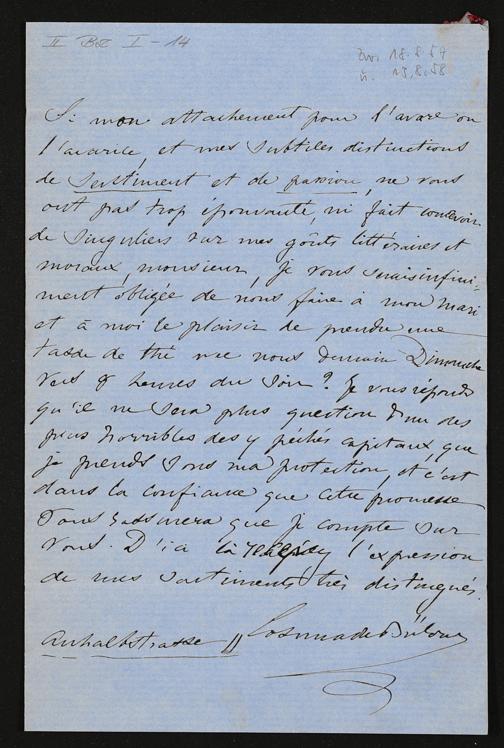 II Bst I-14
zwi 18.8.57
u. 15.8.58
Si mon attachement pour l'avare ou
l'avarice, et mes subtiles distinctions
de sentiment et de passion, ne vous
ont pas trop épouvanté, ni fait concevoir
de singuliers sur mes goûts littéraires et
moraux, monsieur, je vous serais infini-
ment obligée de nous faire à mon mari
et à moi le plaisir de prendre une
tasse de thé avec nous demain Dimanche
vers 8 heures du soir? Je vous réponds
qu'il ne sera plus question d'un des
plus horribles des 7 péchés capitaux, que
je prends sous ma protection, et c'est
dans la confiance que cette promesse
vous rassurera que je compte sur
vous. D'ici là l'expression
de mes sentiments très distingués.
Anhaltstrasse 11 Cosima de Bülow